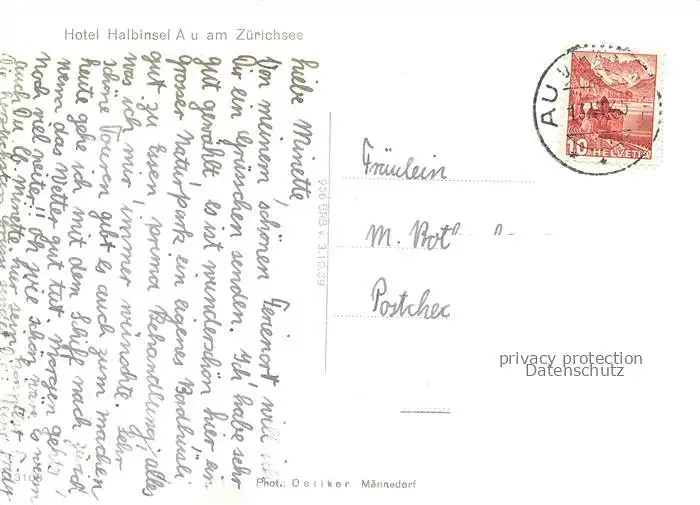 Hotel Halbinsel Au am Zürichsee
Liebe Minette,
Von meinem schönen Ferienort will ich
Dir ein Grüsschen senden. Ich habe sehr
gut gewählt, es ist wunderschön hier, ein
grosser Naturpark, ein eigenes Badhüsli
gut zu Essen, prima Behandlung, alles
was ich mir immer wünschte. Sehr
schöne Touren gibt es auch zum machen
heute gehe ich mit dem Schiff nach Zürich,
wenn das Wetter gut tut. Morgen geht's
noch viel weiter!! Oh wie schön wäre es wenn
auch Du lb. Minette hier sein könntest
Die herzlichsten
956 BRB v. 3.10.39
AU
10 HELVETIA
Fräulein
M. Roth
Postchec
privacy protection
Datenschutz
Phot.: Oetiker Männedorf